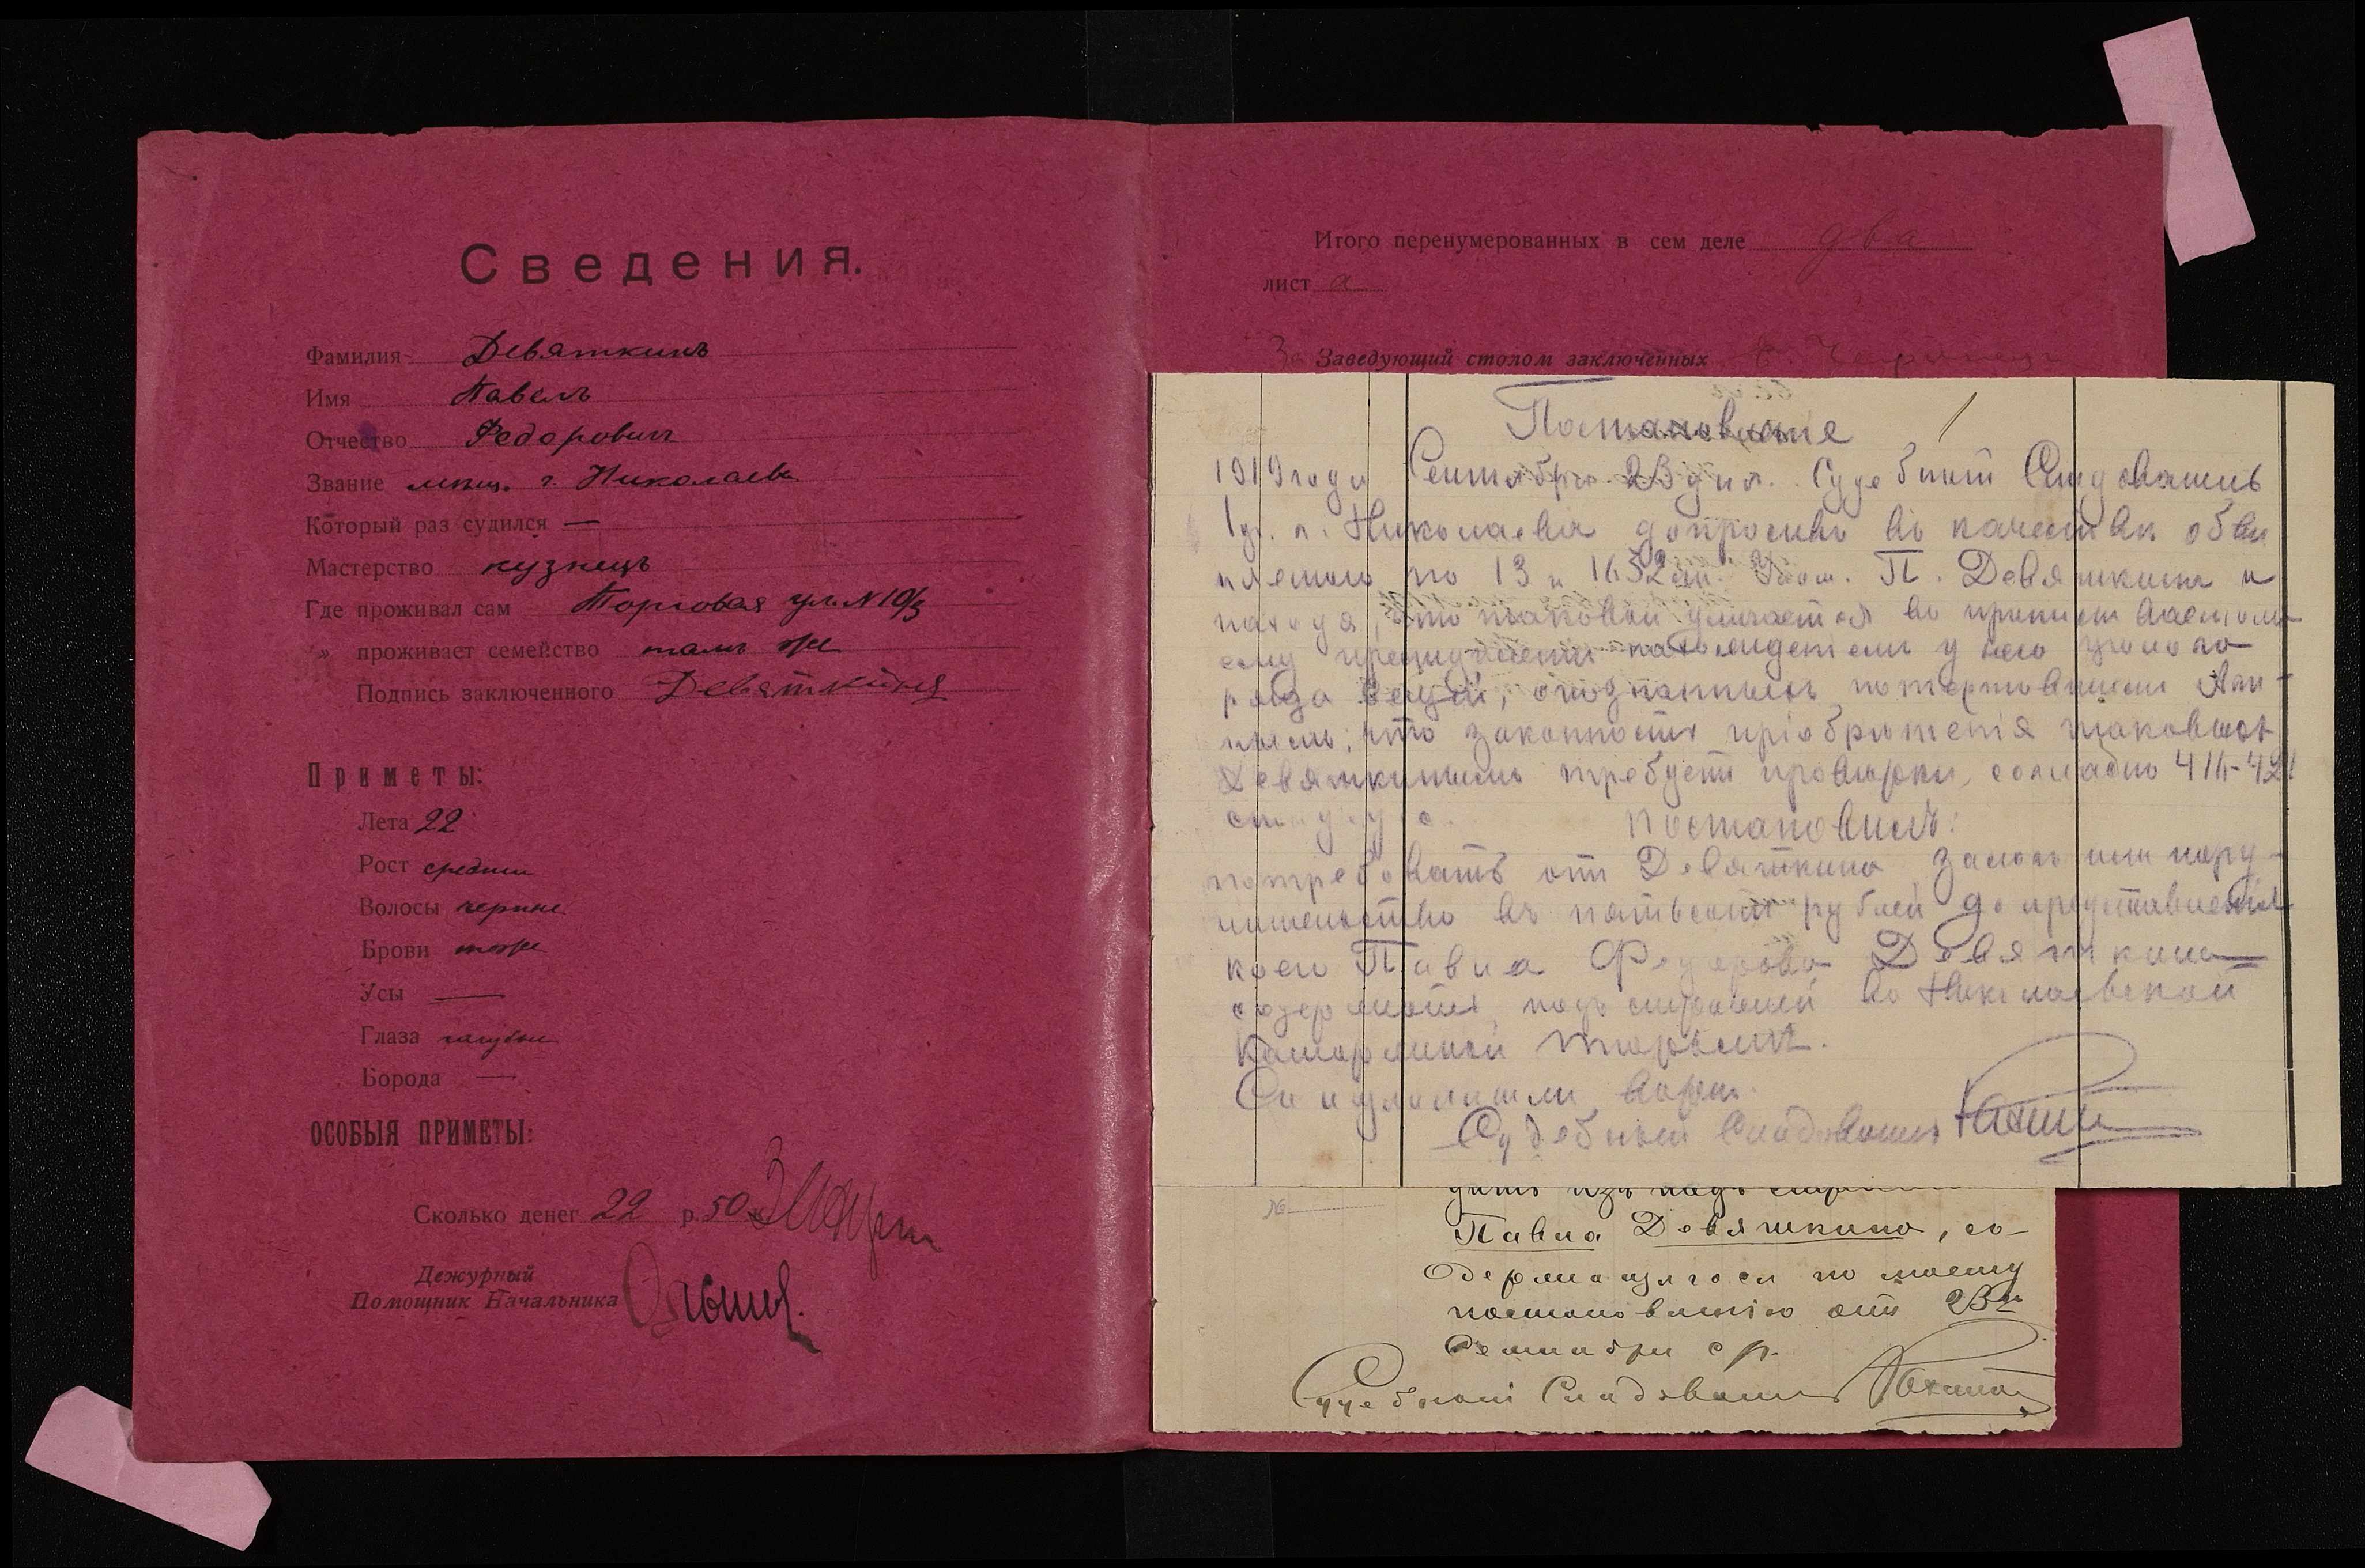 Сведения.
Фамилия Девяткинъ
Имя Павелъ
Отчество Федоровичъ
Звание мѣщ. г. Николаева
Который раз судился —
Мастерство кузнецъ
Где проживал сам Торговая ул. № 10/3
» проживает семейство тамъ же
Подпись заключенного Девяткинъ
Приметы:
Лета 22
Рост средний
Волосы черные
Брови тоже
Усы —
Глаза голубые
Борода —
ОСОБЫЯ ПРИМЕТЫ:
Сколько денег 22 р. 50 к.
Дежурный
Помощник Начальника
Итого перенумерованных в сем деле два
лист а
За Заведующий столом заключенных
Постановленіе
1919 года Сентября 23 дня. Судебный Слѣдователь
1 уч. г. Николаева допросивъ въ качествѣ обви
няемаго по 13 и 1632 ст. Улож. П. Девяткина и
находя, что таковой уличается въ приписываемом
ему преступленіи нахожденіемъ у него
рода вещей, опознанныхъ потерпѣвшим
что законность пріобрѣтенія таковыхъ
Девяткинымъ требуетъ провѣрки, согласно 416-421
ст. у. у. с. постановилъ:
потребовать отъ Девяткина залогъ или пору-
чительство въ пятьсотъ рублей до представленія
коего Павла Федорова Девяткина
содержать подъ стражей въ Николаевской
Каторжной тюрьмѣ.
Судебный Слѣдователь
№
дить изъ подъ стражи
Павла Девяткина, со-
держащагося по моему
постановленію отъ 23го
Сентября с/г.
Судебный Слѣдователь